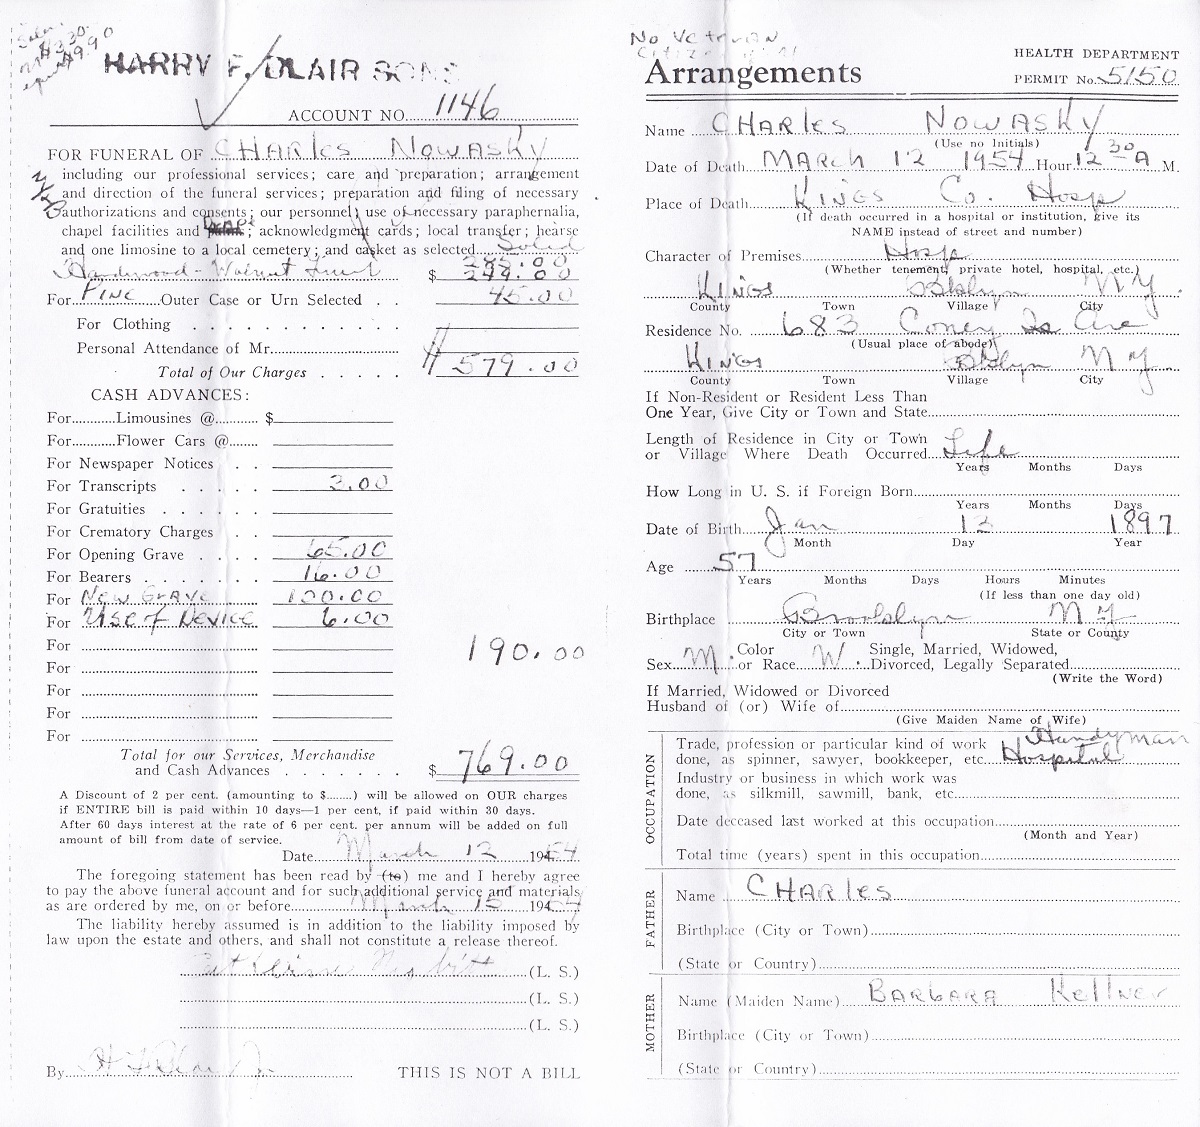 HARRY F. BLAIR SONS
ACCOUNT NO. 1146
FOR FUNERAL OF CHARLES NOWASKY
including our professional services; care and preparation; arrangement
and direction of the funeral services; preparation and filing of necessary
authorizations and consents; our personnel; use of necessary paraphernalia,
chapel facilities and ; acknowledgment cards; local transfer; hearse
and one limosine to a local cemetery; and casket as selected Solid
Hardwood - Walnut $
For PINE Outer Case or Urn Selected . . 45.00
For Clothing . . . . . . . . . . . .
Personal Attendance of Mr.
Total of Our Charges . . . . . 579.00
CASH ADVANCES:
For Limousines @ $
For Flower Cars @
For Newspaper Notices . .
For Transcripts . . . . . 3.00
For Gratuities . . . . . .
For Crematory Charges . .
For Opening Grave . . . . 65.00
For Bearers . . . . . . . 16.00
For NEW GRAVE 100.00
For USE of DEVICE 6.00
For
For 190.00
For
For
For
Total for our Services, Merchandise
and Cash Advances . . . . . . . $ 769.00
A Discount of 2 per cent. (amounting to $........) will be allowed on OUR charges
if ENTIRE bill is paid within 10 days—1 per cent, if paid within 30 days.
After 60 days interest at the rate of 6 per cent. per annum will be added on full
amount of bill from date of service.
Date March 12 1954
The foregoing statement has been read by (to) me and I hereby agree
to pay the above funeral account and for such additional service and materials
as are ordered by me, on or before March 15 1954
The liability hereby assumed is in addition to the liability imposed by
law upon the estate and others, and shall not constitute a release thereof.
(L. S.)
(L. S.)
(L. S.)
By THIS IS NOT A BILL
No Veteran
Arrangements
HEALTH DEPARTMENT
PERMIT No. 5150
Name CHARLES NOWASKY
(Use no Initials)
Date of Death MARCH 12 1954 Hour 12 30 A M.
Place of Death KINGS Co. Hosp
(If death occurred in a hospital or institution, give its
NAME instead of street and number)
Character of Premises Hosp
(Whether tenement, private hotel, hospital, etc.)
KINGS Bklyn NY
County Town Village City
Residence No. 683 Coney Is Ave
(Usual place of abode)
KINGS Bklyn NY
County Town Village City
If Non-Resident or Resident Less Than
One Year, Give City or Town and State
Length of Residence in City or Town
or Village Where Death Occurred Life
Years Months Days
How Long in U. S. if Foreign Born
Years Months Days
Date of Birth Jan 12 1897
Month Day Year
Age 57
Years Months Days Hours Minutes
(If less than one day old)
Birthplace Brooklyn NY
City or Town State or County
Sex M. Color or Race W Single, Married, Widowed,
Divorced, Legally Separated
(Write the Word)
If Married, Widowed or Divorced
Husband of (or) Wife of
(Give Maiden Name of Wife)
OCCUPATION
Trade, profession or particular kind of work Handyman
done, as spinner, sawyer, bookkeeper, etc. Hospital
Industry or business in which work was
done, as silkmill, sawmill, bank, etc.
Date deceased last worked at this occupation
(Month and Year)
Total time (years) spent in this occupation
FATHER
Name CHARLES
Birthplace (City or Town)
(State or Country)
MOTHER
Name (Maiden Name) BARBARA Kellner
Birthplace (City or Town)
(State or Country)